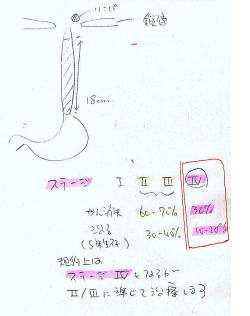 リンパ
鎖骨
18cm
ステージ I II III IV
がん消失 60-70% 30%
治る 30-40% 10-20%
(5年生存)
規約上は
ステージ IV となるが
II/III に準じて治療します